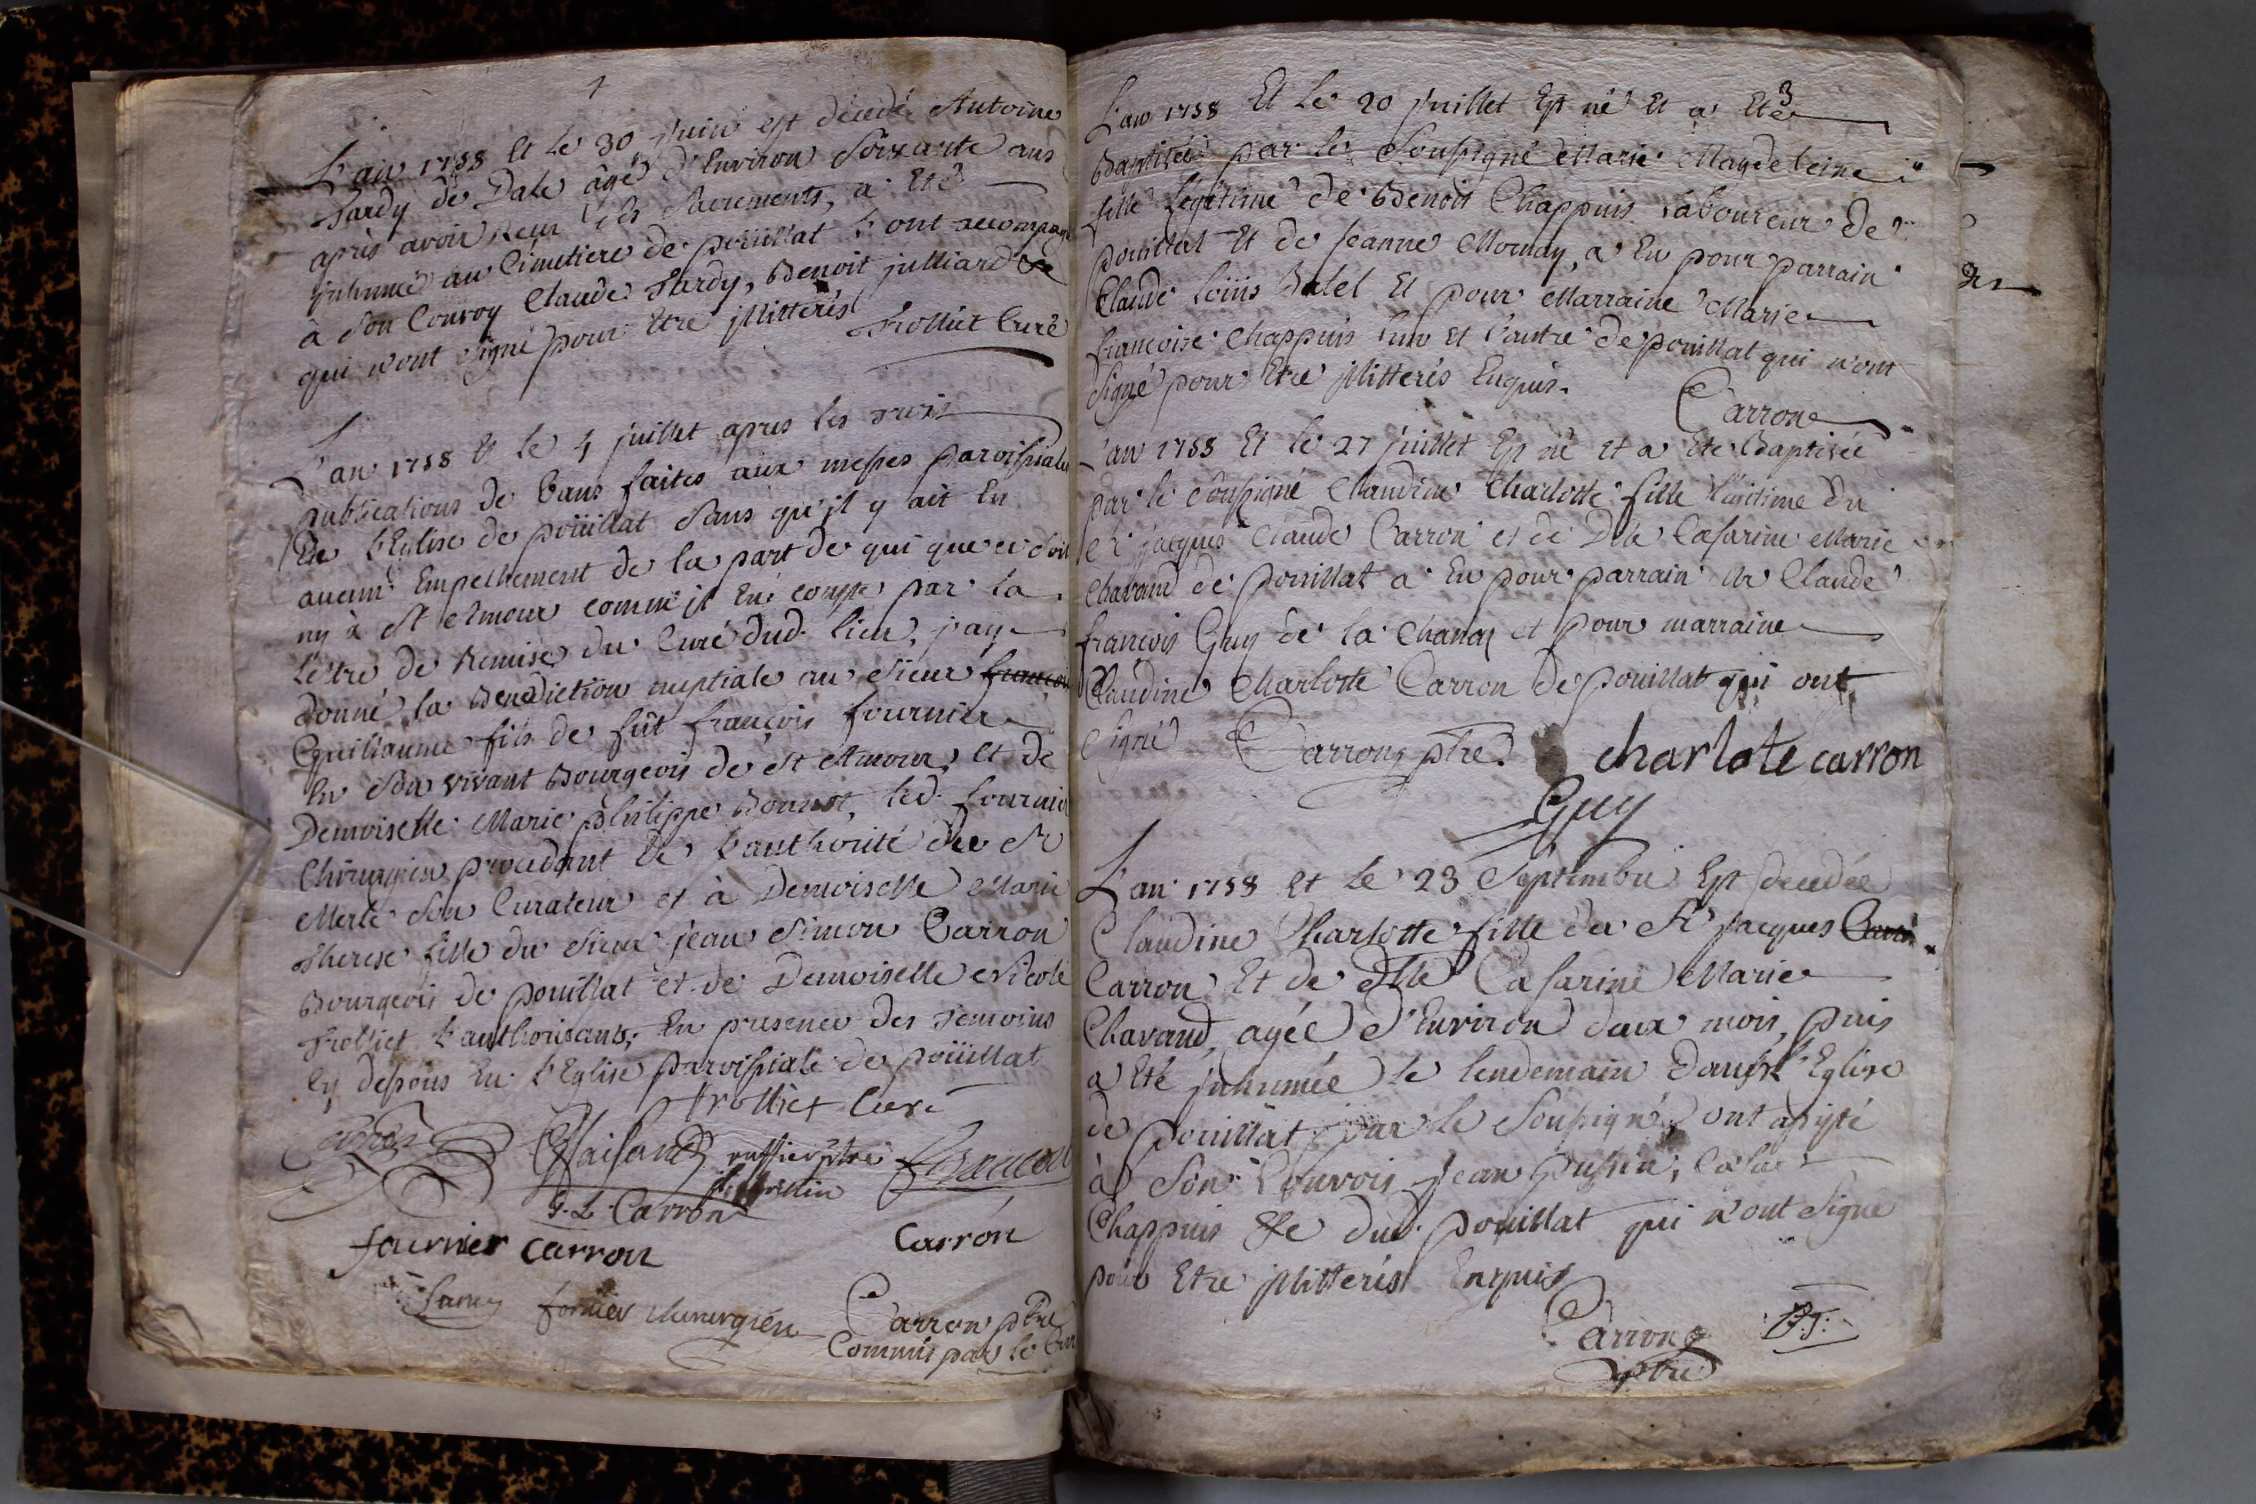 L'an 1758 et le 30 juin est decedé Antoine
Tardy de Dale agé d'Environ Soixante ans
après avoir recu les Sacrements, a Eté
jnhumé au Cimetiere de poüillat L'ont accompagné
à Son Convoy Claude Tardy, Benoit julliard &c
qui n'ont Signé pour Etre jllitterés
Trolliet Curé
L'an 1758 et le 4 juillet apres les trois
publications de bans faites aux messes paroissiales
De L'Eglise de poüillat Sans qu'il y ait Eu
aucun Empechement de la part de qui que ce Soit
ny à St Amour comme il conste par la
lettre de Remise du Curé dud. lieu, j'ay
donné la Benediction nuptiale au Sieur françois
Guillaume fils de fût françois fournier
En Son vivant Bourgeois de St Amour, et de
Demoiselle Marie philippe Bonnot, led. fournier
Chirurgien procedant de L'authorité du Sr
Merle Son Curateur et à Demoiselle Marie
Therese fille du Sieur jean Simon Carron
Bourgeois de pouillat et de Demoiselle Nicole
Trolliet L'authorisants, En presence des temoins
Cy dessous En L'Eglise paroissiale de poüillat
Trolliet Curé
J. L. Carron
fournier carron
Carron
fornier chirurgien
Carron ptre
Commis par le Curé
3
L'an 1758 Et Le 20 juillet Est né Et a Eté
Baptisée par le Soussigné Marie Magdeleine
fille Légitime de Benoit Chappuis laboureur de
pouillat Et de Jeanne Mornay, a Eu pour parrain
Claude loüis Balel Et pour Marraine Marie
francoise Chappuis l'un Et L'autre de pouillat qui n'ont
Signé pour Etre jllitterés Enquis.
Carron
L'an 1758 Et le 27 juillet Est né et a Eté Baptisée
par le Soussigné Claudine Charlotte fille légitime du
Sr jacques Claude Carron et de Dlle Casarine Marie
Chavand de pouillat a Eu pour parrain Mr Claude
françois Guy de la Chanaz et pour marraine
Claudine Charlotte Carron de pouillat qui ont
Signé Carron ptre. charlote carron
Guy
L'an 1758 et Le 23 Septembre Est decedée
Claudine Charlotte fille du Sr Jacques
Carron Et de Dlle Casarine Marie
Chavand, agée d'Environ deux mois, puis
a Eté jnhumée le lendemain Dans L'Eglise
de pouillat par le Soussigné ont assisté
à Son Convois Jean
Chappuis &c dud. pouillat qui n'ont Signé
pour Etre jllitterés Enquis
Carron
ptre